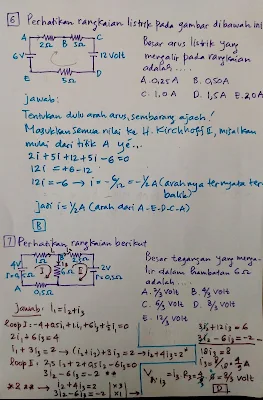 6 Perhatikan rangkaian listrik pada gambar dibawah ini
A 2Ω B 3Ω C
6V
12 Volt
E 5Ω D
Besar arus listrik yang
mengalir pada rangkaian
adalah....
A. 0,25 A B. 0,50A
C. 1,0 A D. 1,5A E. 2,0A
jawab:
Tentukan dulu arah arus, sembarang ajach!
Masukkan semua nilai ke H. Kirchhoff II, misalkan
mulai dari titik A ye...
2i + 5i + 12 + 5i - 6 = 0
12i = +6-12
12i = -6 → i = -6/12 = -1/2 A (arahnya ternyata ter
balik)
jadi i = 1/2 A (arah dari A-E-D-C-A)
B
7 Perhatikan rangkaian berikut
4V
6Ω
2V
r=0,5Ω
A 0,5Ω
Besar tegangan yang menga-
lir dalam hambatan 6Ω
adalah....
A. 2/3 volt B. 4/3 volt
C. 5/3 volt D. 8/3 volt
E. 12/3 volt
Jawab: i₁ = i₂ + i₃
loop I: -4 + 0,5i₁ + 1i₁ + 6i₃ + 1/2i₁ = 0
2i₁ + 6i₃ = 4
i₁ + 3i₃ = 2 → (i₂+i₃) + 3i₃ = 2 → i₂ + 4i₃ = 2
3i₂ - 6i₃ = -2 **
* & ** → i₂ + 4i₃ = 2 | x3 |
3i₂ - 6i₃ = -2 | x1 |
3i₂ + 12i₃ = 6
3i₂ - 6i₃ = -2 -
18i₃ = 8
D